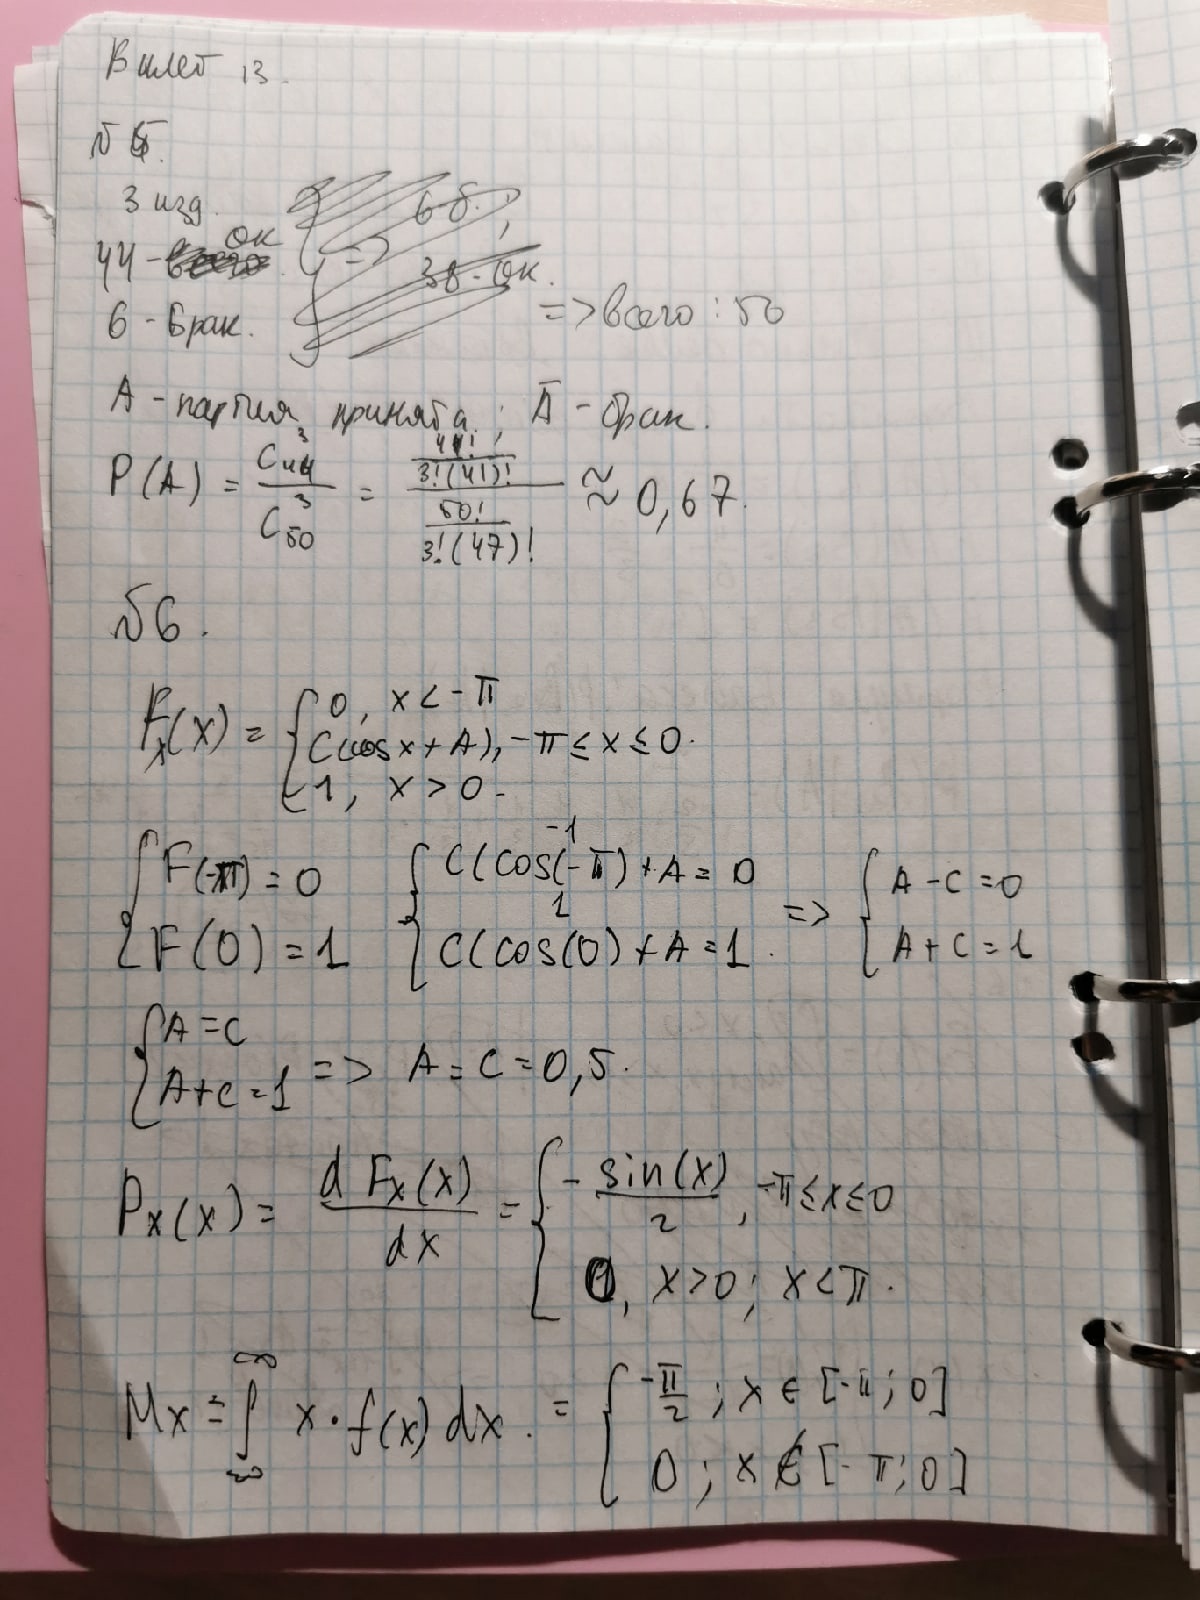 Билет 13.
№ 5.
3 изд.
44 - ок
6 - брак.
6 б.,
38 - ок.
=> всего : 50
A - партия принята ; Ā - брак.
P(A) = C₄₄³ / C₅₀³ = (44! / 3!(41)!) / (50! / 3!(47)!) ≈ 0,67.
№6.
Fx(x) = { 0, x < -π
C(cos x + A), -π ≤ x ≤ 0.
1, x > 0.
{ F(-π) = 0 { C(cos(-π) + A = 0 => { A - C = 0
-1
{ F(0) = 1 { C(cos(0) + A = 1. { A + C = 1
1
{ A = C
A + C = 1 => A = C = 0,5.
Px(x) = d Fx(x) / dx = { - sin(x) / 2, -π ≤ x ≤ 0
0, x > 0; x < π.
Mx = ∫ x · f(x) dx. = { -π/2 ; x ∈ [-π; 0]
0 ; x ∉ [-π; 0]